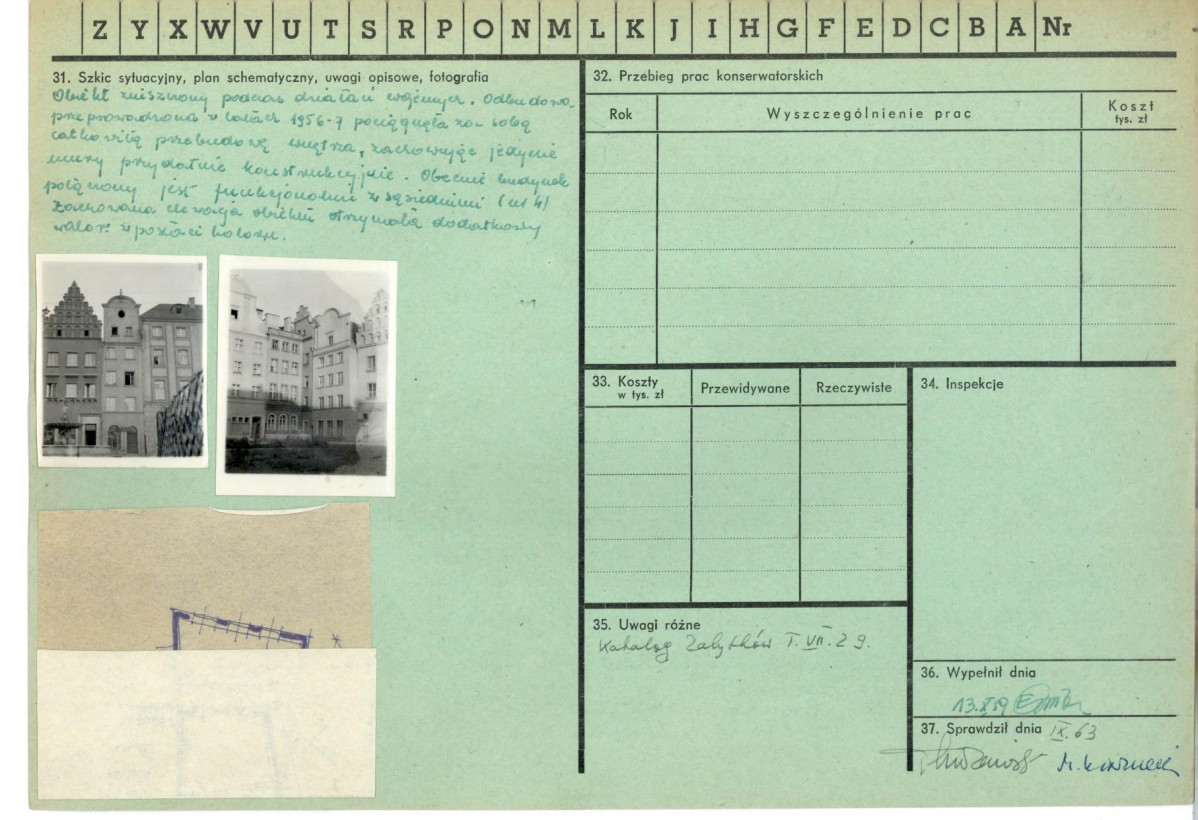 Z Y X W V U T S R P O N M L K J I H G F E D C B A Nr
31. Szkic sytuacyjny, plan schematyczny, uwagi opisowe, fotografia
Obiekt zniszczony podczas działań wojennych. Odbudowa
przeprowadzona w latach 1956-7 pociągnęła za sobą
całkowitą przebudowę wnętrza, zachowując jedynie
mury przydatne konstrukcyjnie. Obecnie budynek
połączony jest funkcjonalnie z sąsiednimi (nr 4)
Zachowana elewacja obiektu otrzymała dodatkowy
walor w postaci koloru.
32. Przebieg prac konserwatorskich
Rok
Wyszczególnienie prac
Koszt
tys. zł
33. Koszty
w tys. zł
Przewidywane
Rzeczywiste
34. Inspekcje
35. Uwagi różne
Katalog Zabytków T. VII. z 9.
36. Wypełnił dnia
13.X.59
37. Sprawdził dnia IX.63